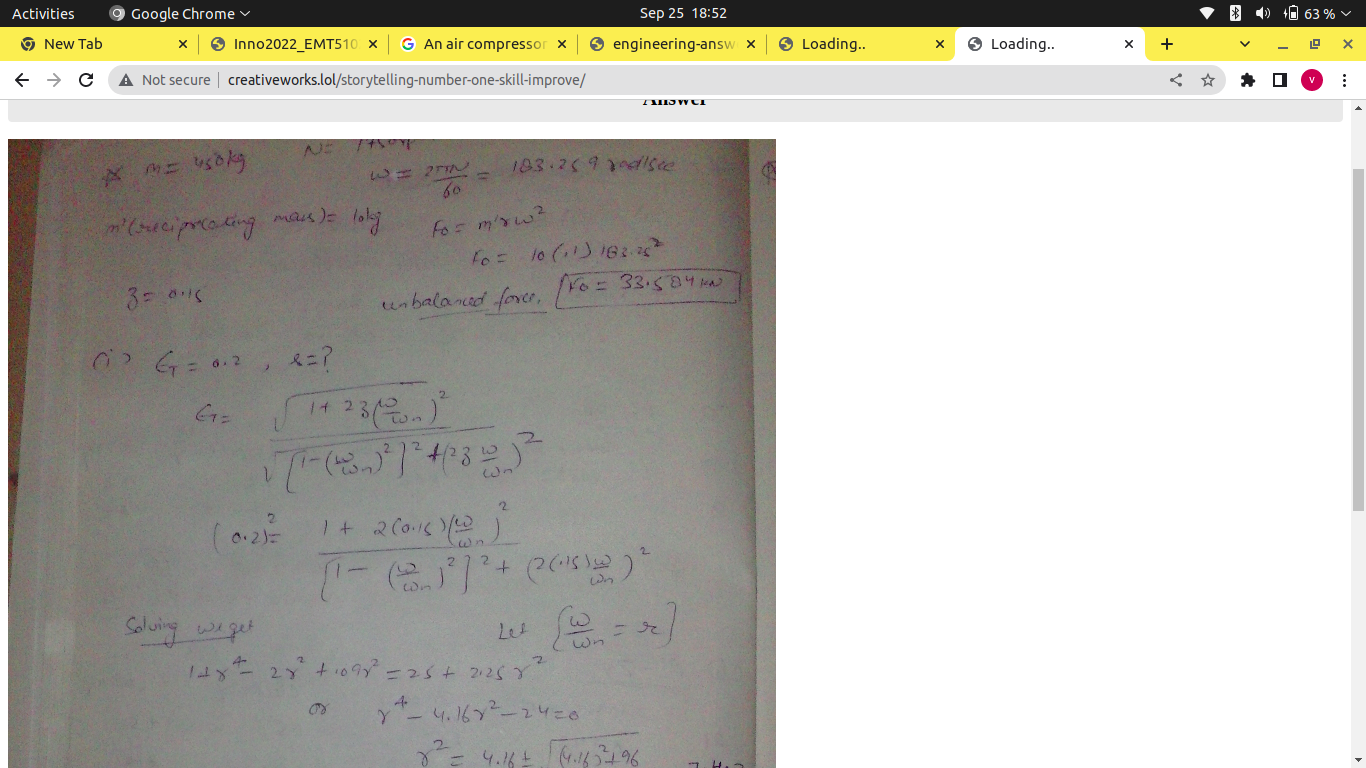 Activities Google Chrome Sep 25 18:52 63 %
New Tab Inno2022_EMT510 An air compressor engineering-answ Loading.. Loading..
Not secure creativeworks.lol/storytelling-number-one-skill-improve/ v
Answer
m = 450kg N=
ω = 2πN/60 = 183.259 rad/sec
m'(reciprocating mass) = 10kg F₀ = m'rω²
F₀ = 10(.1) 183.25²
ʒ = 0.15 unbalanced force, F₀ = 33.584 kN
(i) Є_T = 0.2 , s=?
Є_T = √(1 + 2ʒ(ω/ωn)²) / √([1-(ω/ωn)²]² + (2ʒ ω/ωn)²)
(0.2)² = 1 + 2(0.15)(ω/ωn)² / [1 - (ω/ωn)²]² + (2(.15)ω/ωn)²
Solving we get Let [ω/ωn = r]
1+r⁴ - 2r² + .09r² = 25 + 2.25 r²
or r⁴ - 4.16r² - 24 = 0
r² = 4.16 ± √(4.16)²+96